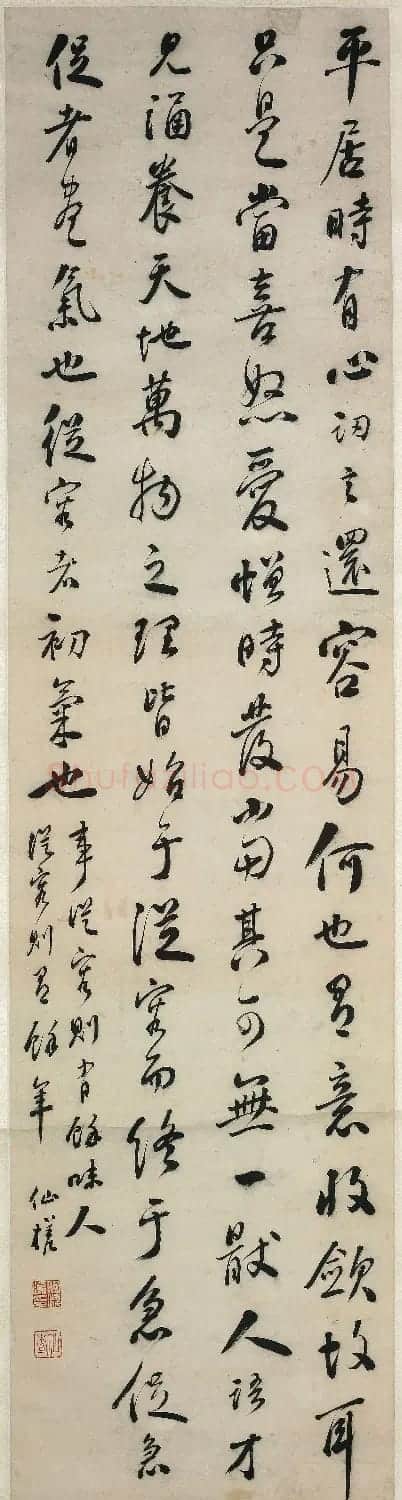 平居時有心訒言還容易何也有意收斂故耳
只是當喜怒愛憎時發當其可無一厭人語才
見涵養天地萬物之理皆始于從容而終于急促急
促者盡氣也從容者初氣也
事從容則有餘味人
從容則有餘年 仙槎
shufaziliao.com